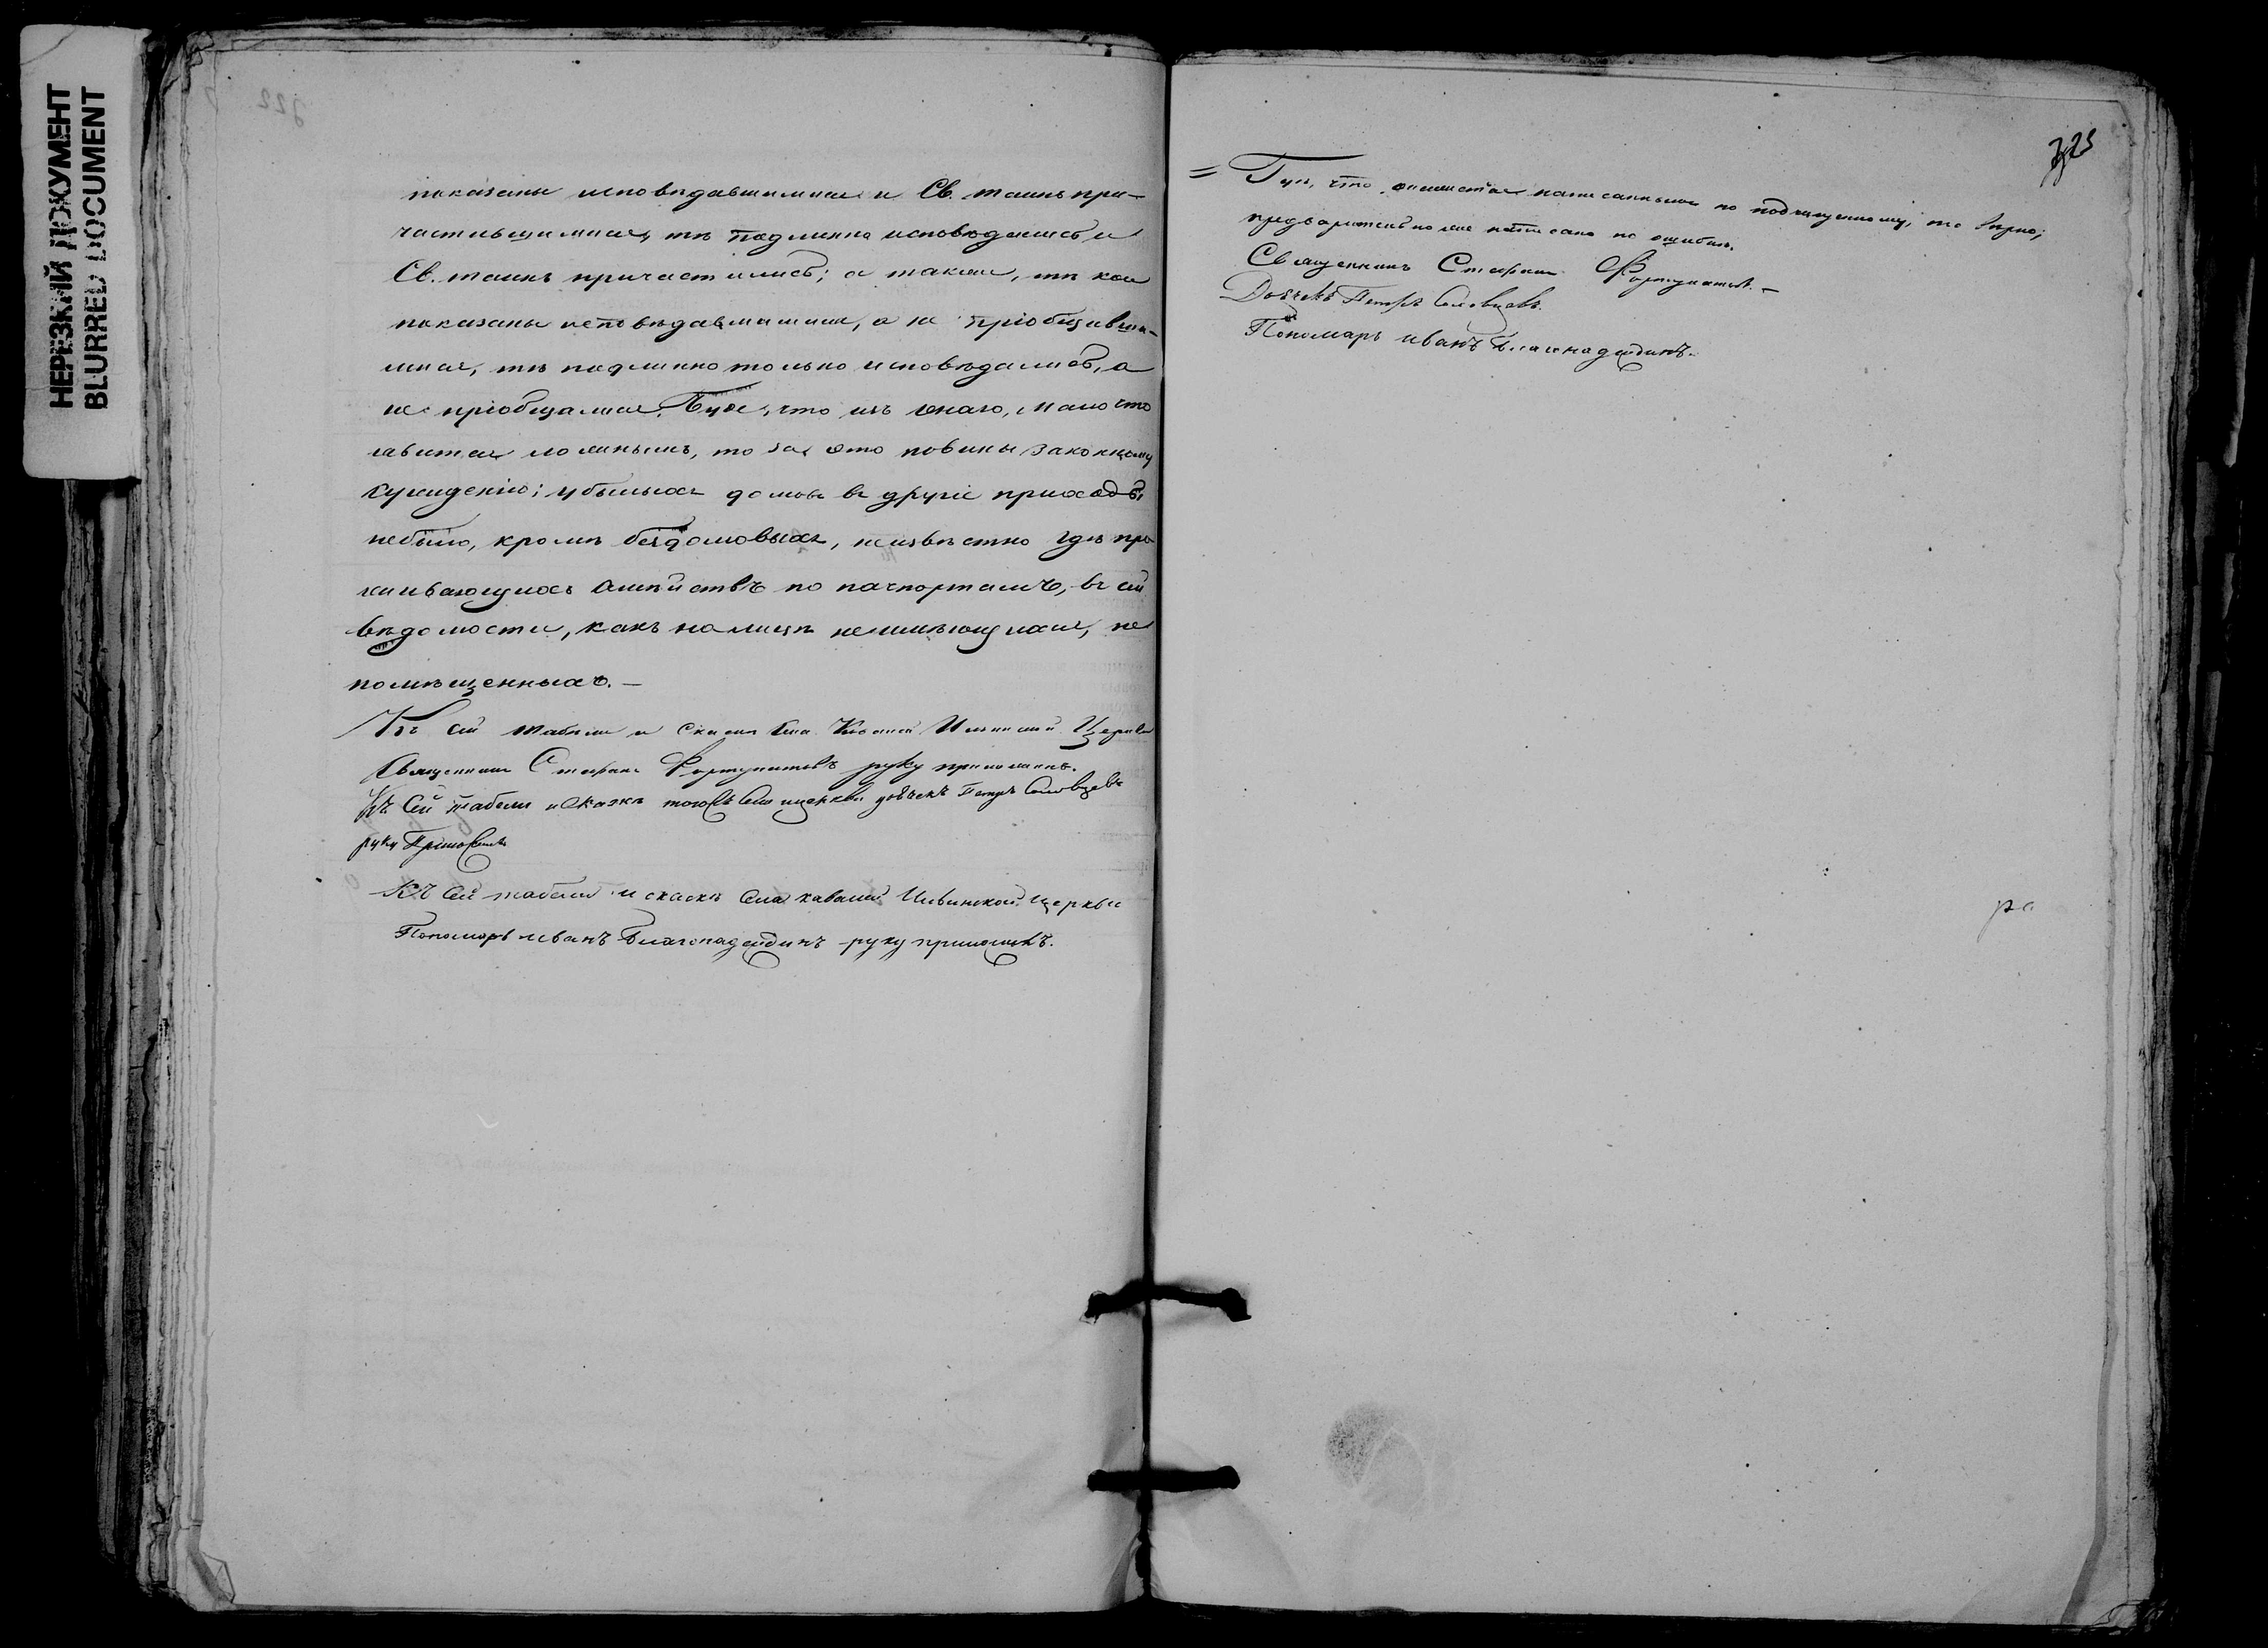 НЕРЕЗКИЙ ДОКУМЕНТ
BLURRED DOCUMENT
показаны исповѣдавшимися и Св. таинъ при-
частившимися, тѣ подлинно исповѣдались и
Св. таинъ причастились; а также, тѣ кои
показаны исповѣдавшимися, а не пріобщивши-
мися, тѣ подлинно только исповѣдались, а
не пріобщались. Буде, что изъ онаго, мало что
явится ложнымъ, то за это повины законному
сужденію; убылыхъ домовъ въ другіе приходы
небыло, кромѣ бездомовыхъ, неизвѣстно гдѣ про
живающихъ по пачпортамъ, въ сей
вѣдомости, какъ на лицѣ неимѣющихся, не
помѣщенныхъ. —
Къ сей табели и Села Церкви
Священникъ Стефанъ Фортунатовъ руку приложилъ.
Къ Сей табели и Сказкѣ тогожъ Села церкви дьячекъ Петръ Соловцевъ
руку Приложилъ
Къ Сей табели и сказкѣ Села церкви
Пономарь иванъ Благонадеждинъ руку приложилъ.
323
= написанными по подчищенному, то вѣрно;
написано по ошибкѣ.
Священникъ Стефанъ Фортунатовъ. —
Дьячекъ Петръ Соловцевъ.
Пономарь иванъ Благонадеждинъ.